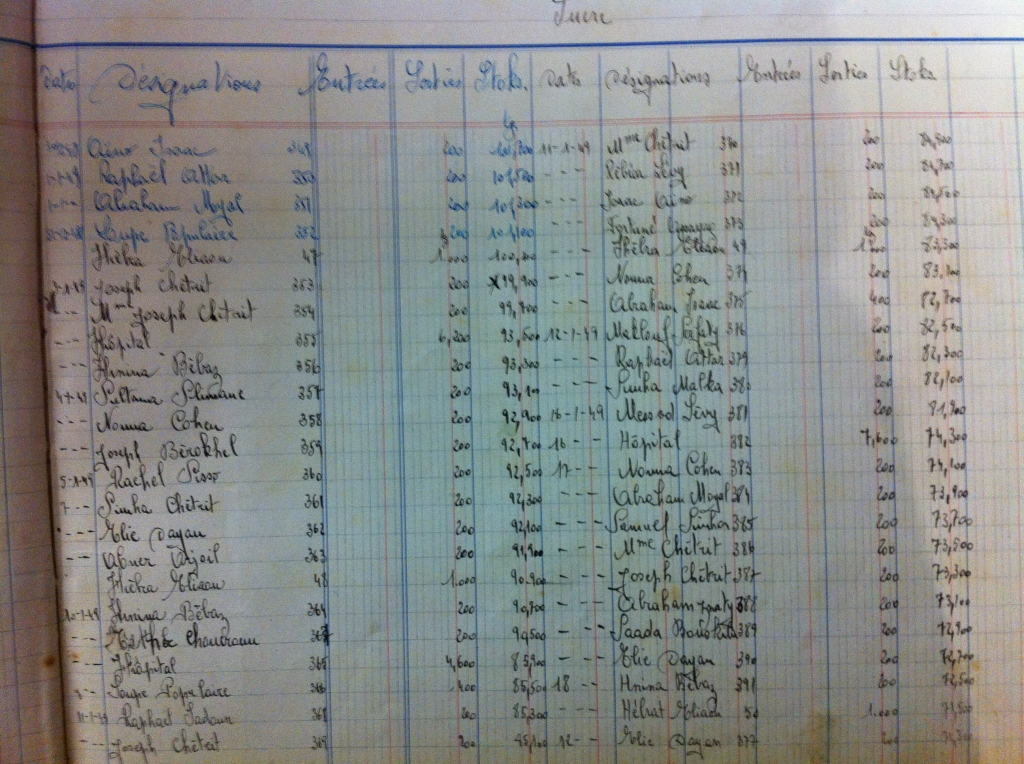 Sucre
Dates Désignations Entrées Sorties Stoks. Dates Désignations Entrées Sorties Stoks.
kg
Isaac 200 11-1-49 Mme Chétrit 370 200
Raphaël Attar 350 200 101,500 - - - Lévy 371 200 84,700
Abraham Moyal 351 200 101,300 - - - Isaac 372 200 84,500
Soupe Populaire 352 200 101,100 - - - Fortuné 373 200 84,300
Hiébra Eliaou 47 1.000 100,100 - - - Hiébra Eliaou 49 1.000 83,300
Joseph Chétrit 353 200 99,900 - - - Nouna Cohen 374 200 83,100
- - Mme Joseph Chétrit 354 200 99,700 - - - Abraham Isaac 375 400 82,700
- - - Hôpital 355 6,200 93,500 12-1-49 Maklouf 376 200 82,500
- - - Hnina Bébaz 356 200 93,300 - - - Raphaël Attar 379 200 82,300
Sultana Slimane 357 200 93,100 - - - Simha Malka 380 200 82,100
- - - Nouna Cohen 358 200 92,900 16-1-49 Messod Lévy 381 200 81,900
- - - Joseph Bérokhel 359 200 92,700 16 - - Hôpital 382 7,600 74,300
5-1-49 Rachel Sisso 360 200 92,500 17 - - Nouna Cohen 383 200 74,100
7 - - Simha Chétrit 361 200 92,300 - - - Abraham Moyal 384 200 73,900
- - Elie Dayan 362 200 92,100 - - - Samuel Simhon 385 200 73,700
- - - Abner 363 200 91,900 - - - Mme Chétrit 386 200 73,500
Hiébra Eliaou 48 1.000 90,900 - - - Joseph Chétrit 387 200 73,300
10-1-49 Hnina Bébaz 364 200 90,700 - - - Abraham 388 200 73,100
- - 200 90,500 - - - Saada 389 200 72,900
- - - Hôpital 4,600 85,900 - - - Elie Dayan 390 200 72,700
- - Soupe Populaire 400 85,500 18 - - Hnina Bébaz 391 200 72,500
11-1-49 Raphaël 368 200 85,300 - - - Hébrat Eliaou 50 1.000 71,500
- - - Joseph Chétrit 369 200 85,100 12 - - Elie Dayan 377 200